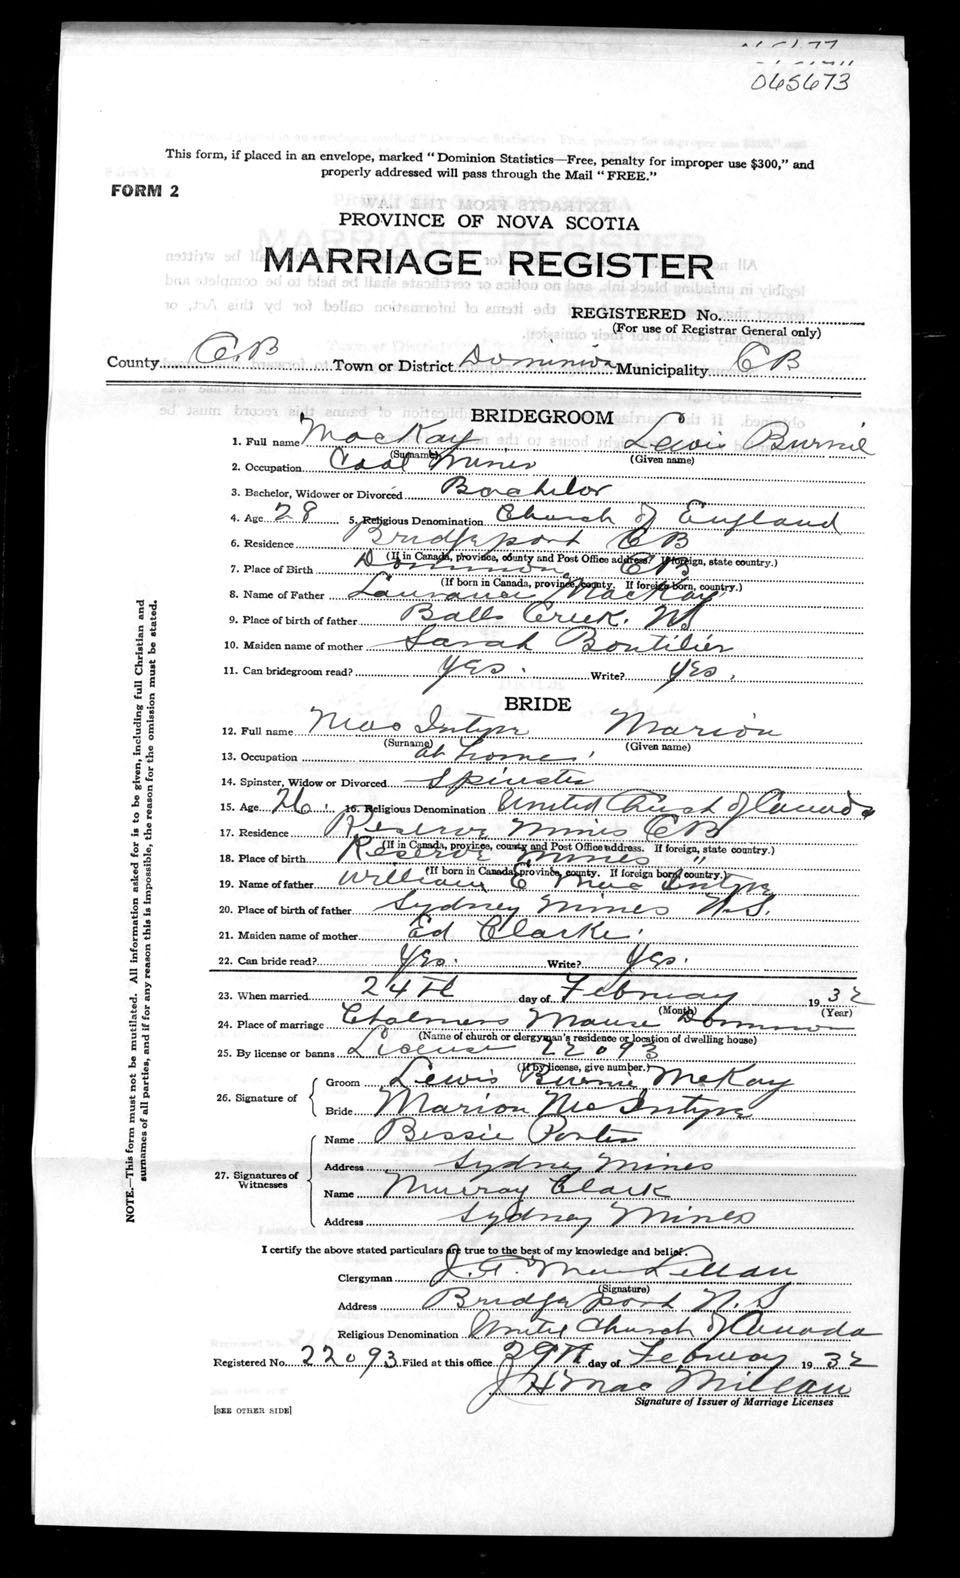 065673
This form, if placed in an envelope, marked "Dominion Statistics—Free, penalty for improper use $300," and
properly addressed will pass through the Mail "FREE."
FORM 2
PROVINCE OF NOVA SCOTIA
MARRIAGE REGISTER
REGISTERED No.
(For use of Registrar General only)
County C.B Town or District Dominion Municipality C B
BRIDEGROOM
1. Full name MacKay Lewis Burnie
(Surname) (Given name)
2. Occupation Coal Miner
3. Bachelor, Widower or Divorced Bachelor
4. Age 28 5. Religious Denomination Church of England
6. Residence Bridgeport C B
(If in Canada, province, county and Post Office address. If foreign, state country.)
7. Place of Birth Dominion C B
(If born in Canada, province, county. If foreign born, country.)
8. Name of Father Laurance MacKay
9. Place of birth of father Balls Creek. NS
10. Maiden name of mother Sarah Boutilier
11. Can bridegroom read? Yes. Write? Yes.
BRIDE
12. Full name Mac Intyre Marion
(Surname) (Given name)
13. Occupation at home
14. Spinster, Widow or Divorced Spinster
15. Age 26. 16. Religious Denomination United Church of Canada
17. Residence Reserve Mines C B
(If in Canada, province, county and Post Office address. If foreign, state country.)
18. Place of birth Reserve Mines "
(If born in Canada, province, county. If foreign born, country.)
19. Name of father William C Mac Intyre
20. Place of birth of father Sydney Mines N.S.
21. Maiden name of mother Ed Clarke
22. Can bride read? Yes. Write? Yes.
23. When married 24th day of February 1932
(Month) (Year)
24. Place of marriage Chalmers Manse Dominion
(Name of church or clergyman's residence or location of dwelling house)
25. By license or banns License 22093
(If by license, give number.)
26. Signature of
Groom Lewis Burnie McKay
Bride Marion MacIntyre
27. Signatures of Witnesses
Name Bessie Porter
Address Sydney Mines
Name Murray Clark
Address Sydney Mines
I certify the above stated particulars are true to the best of my knowledge and belief.
Clergyman J. A. MacLellan
(Signature)
Address Bridgeport N.S
Religious Denomination United Church of Canada
Registered No. 22093 Filed at this office 29th day of February 1932
J H MacMillan
Signature of Issuer of Marriage Licenses
[SEE OTHER SIDE]
NOTE.—This form must not be mutilated. All information asked for is to be given, including full Christian and
surnames of all parties, and if for any reason this is impossible, the reason for the omission must be stated.